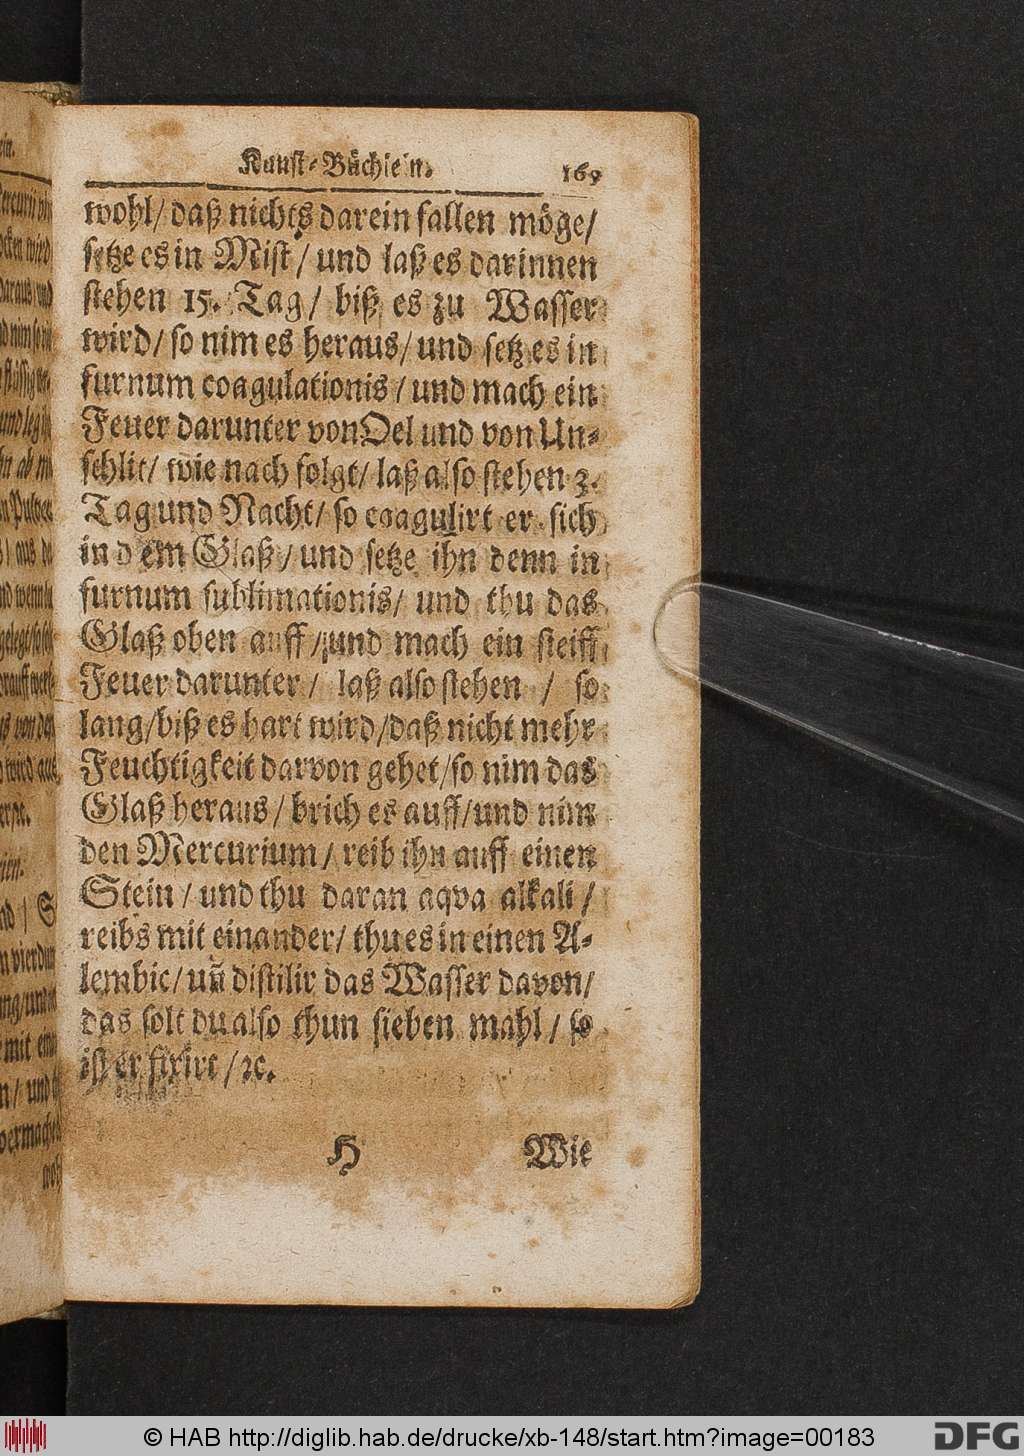 Kunst-Büchlein. 169
wohl/ daß nichts darein fallen möge/
setze es in Mist/ und laß es darinnen
stehen 15. Tag/ biß es zu Wasser
wird/ so nim es heraus/ und setz es in
furnum coagulationis/ und mach ein
Feuer darunter von Oel und von Un-
schlit/ wie nach folgt/ laß also stehen 3.
Tag und Nacht/ so coagulirt er sich
in dem Glaß/ und setze ihn denn in
furnum sublimationis/ und thu das
Glaß oben auff/ und mach ein steiff
Feuer darunter/ laß also stehen / so
lang/ biß es hart wird/ daß nicht mehr
Feuchtigkeit darvon gehet/ so nim das
Glaß heraus/ brich es auff/ und nim
den Mercurium/ reib ihn auff einen
Stein/ und thu daran aqva alkali/
reibs mit einander/ thu es in einen A-
lembic/ uñ distilir das Wasser davon/
das solt du also thun sieben mahl/ so
ist er fixirt/ ꝛc.
H Wie
© HAB http://diglib.hab.de/drucke/xb-148/start.htm?image=00183
DFG